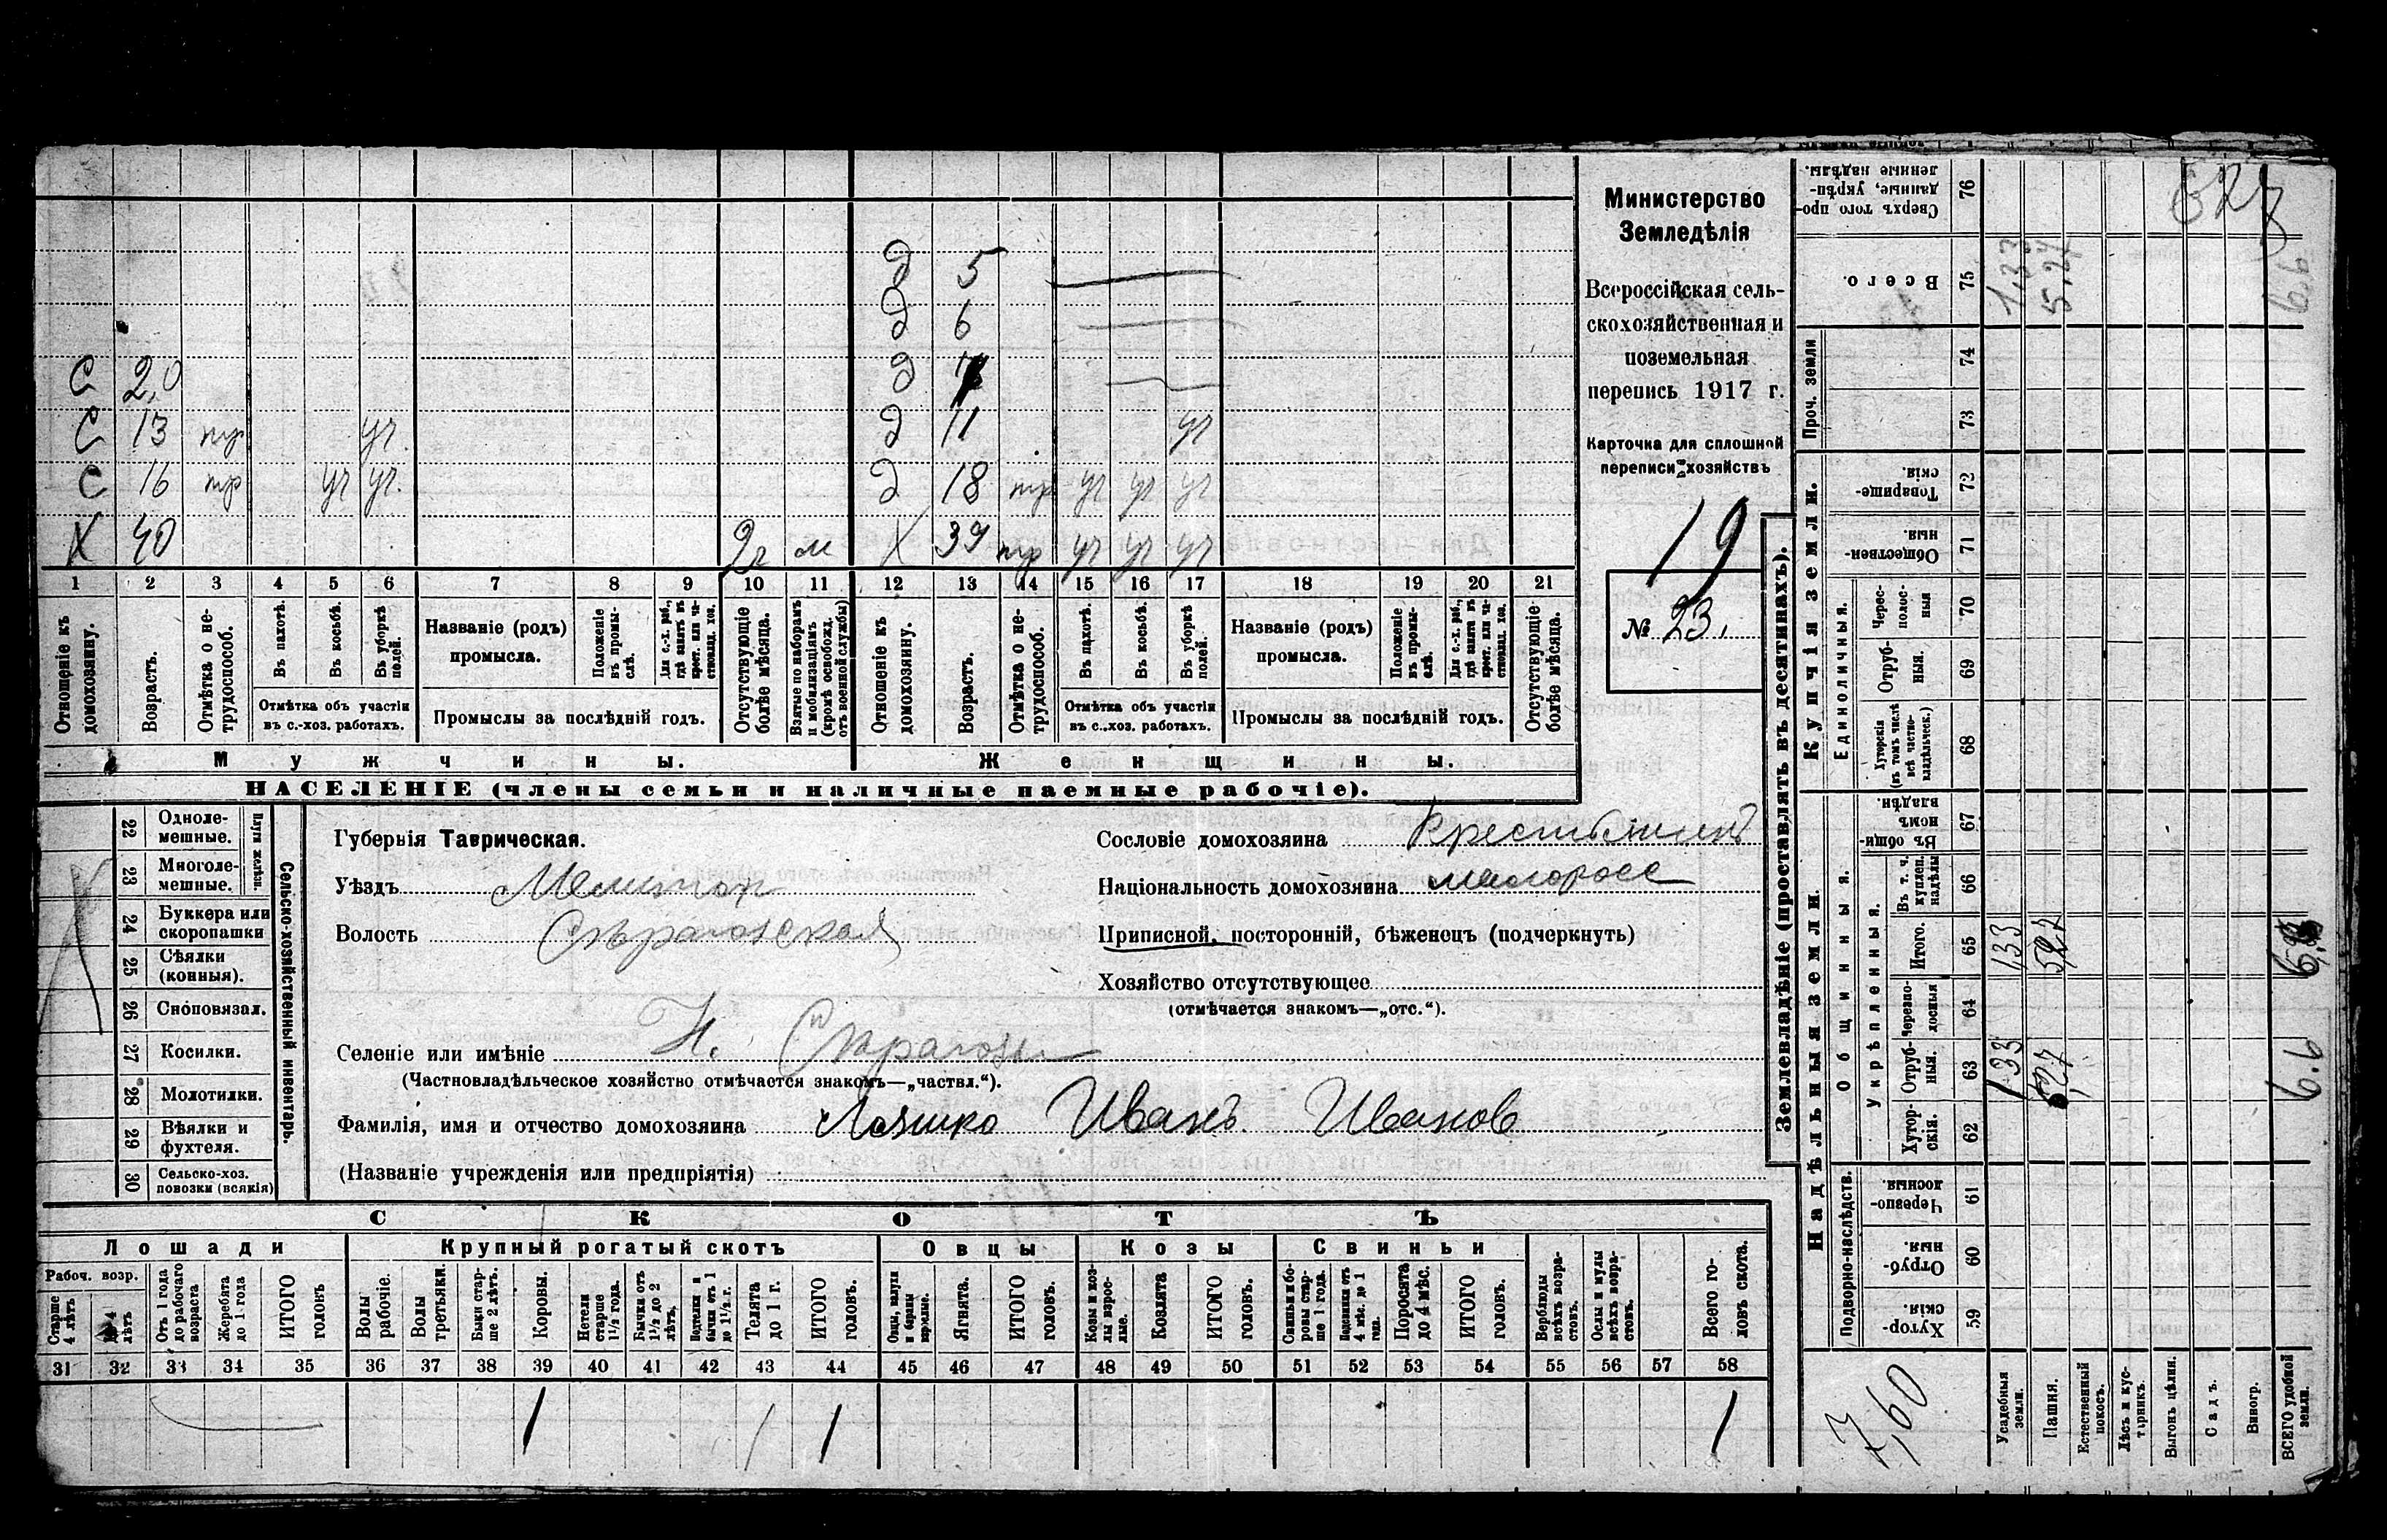 д 5
д 6
С 2,0 д
С 13 тр уч. д 11 уч
С 16 тр уч уч. д 18 тр уч уч уч
Х 40 2г м Х 39 тр уч уч уч
1 2 3 4 5 6 7 8 9 10 11 12 13 14 15 16 17 18 19 20 21
Отношеніе къ домохозяину.
Возрастъ.
Отмѣтка о не-
трудоспособ.
Въ пахотѣ.
Въ косьбѣ.
Въ уборкѣ полей.
Отмѣтка объ участіи
въ с.-хоз. работахъ.
Названіе (родъ)
промысла.
Положеніе
въ промы-
слѣ.
Для с.-х. раб.,
гдѣ занятъ въ
крест. или ча-
стновлад. хоз.
Промыслы за послѣдній годъ.
Отсутствующіе
болѣе мѣсяца.
Взятые по наборамъ
и мобилизаціямъ
(кромѣ освобожд.
отъ военной службы)
Отношеніе къ
домохозяину.
Возрастъ.
Отмѣтка о не-
трудоспособ.
Въ пахотѣ.
Въ косьбѣ.
Въ уборкѣ
полей.
Отмѣтка объ участіи
въ с.-хоз. работахъ.
Названіе (родъ)
промысла.
Положеніе
въ промы-
слѣ.
Для с.-х. раб.,
гдѣ занята въ
крест. или ча-
стновлад. хоз.
Промыслы за послѣдній годъ.
Отсутствующіе
болѣе мѣсяца.
Мужчины. Женщины.
НАСЕЛЕНІЕ (члены семьи и наличные наемные рабочіе).
Министерство
Земледѣлія
Всероссійская сель-
скохозяйственная и
поземельная
перепись 1917 г.
Карточка для сплошной
переписи хозяйствъ
19
№ 23.
22 Одноле-
мешные.
23 Многоле-
мешные.
Плуги желѣзн.
24 Буккера или
скоропашки
25 Сѣялки
(конныя).
26 Сноповязал.
27 Косилки.
28 Молотилки.
29 Вѣялки и
фухтеля.
30 Сельско-хоз.
повозки (всякія)
Сельско-хозяйственный инвентарь.
Губернія Таврическая.
Уѣздъ Мелитоп
Волость Сѣрогозская
Селеніе или имѣніе Н. Сѣрогозы
(Частновладѣльческое хозяйство отмѣчается знакомъ—„частвл.“).
Фамилія, имя и отчество домохозяина Иванъ Иванов
(Названіе учрежденія или предпріятія)
Сословіе домохозяина Крестьянинъ
Національность домохозяина малоросс
Приписной, посторонній, бѣженецъ (подчеркнуть)
Хозяйство отсутствующее
(отмѣчается знакомъ—„отс.“).
СКОТЪ
Лошади Крупный рогатый скотъ Овцы Козы Свиньи
Рабоч. возр.
Старше
4 лѣтъ
До 4
лѣтъ
Отъ 1 года
до рабочаго
возраста
Жеребята
до 1 года
ИТОГО
головъ
Волы
рабочіе.
Волы
третьяки.
Быки стар-
ше 2 лѣтъ.
Коровы.
Нетели
старше
1½ года.
Бычки отъ
1½ до 2
лѣтъ.
Подтелки и
бычки отъ 1
до 1½ г.
Телята
до 1 г.
ИТОГО
головъ.
Овцы, валухи
и бараны
взрослые.
Ягнята.
ИТОГО
головъ.
Козы и коз-
лы взрос-
лые.
Козлята
ИТОГО
головъ.
Свиньи и бо-
ровы стар-
ше 1 года.
Подсвинки отъ
4 мѣс. до 1
года.
Поросята
до 4 мѣс.
ИТОГО
головъ.
Верблюды
всѣхъ возра-
стовъ.
Ослы и мулы
всѣхъ возра-
стовъ.
Всего го-
ловъ скота.
31 32 33 34 35 36 37 38 39 40 41 42 43 44 45 46 47 48 49 50 51 52 53 54 55 56 57 58
1 1 1 1
Землевладѣніе (проставлять въ десятинахъ).
Надѣльныя земли. Купчія земли. Проч. земли
Подворно-наслѣдств. Общинныя. Единоличныя.
Укрѣпленныя.
59 Хутор-
скія.
60 Отруб-
ныя.
61 Черезпо-
лосныя
62 Хутор-
скія.
63 Отруб-
ныя. 1,33 5,27 6,6
64 Черезпо-
лосныя
65 Итого. 1,33 5,27
66 Въ т. ч.
куплен.
надѣлы
67 Въ общи-
номъ
владѣн.
68 Хуторскія
(въ томъ числѣ
всѣ частно-
владѣльческ.)
69 Отруб-
ныя.
70 Черес-
полос-
ныя
71 Обществен-
ныя
72 Товарище-
скія.
73
74
75 Всего. 1,33 5,27 6,6
76 Сверхъ того про-
данные, укрѣп-
ленные надѣлы.
7,60
Усадебныя
земли.
Пашня.
Естественный
покосъ.
Лѣсъ и кус-
тарникъ.
Выгонъ цѣлин.
Садъ.
Виногр.
ВСЕГО удобной
земли.